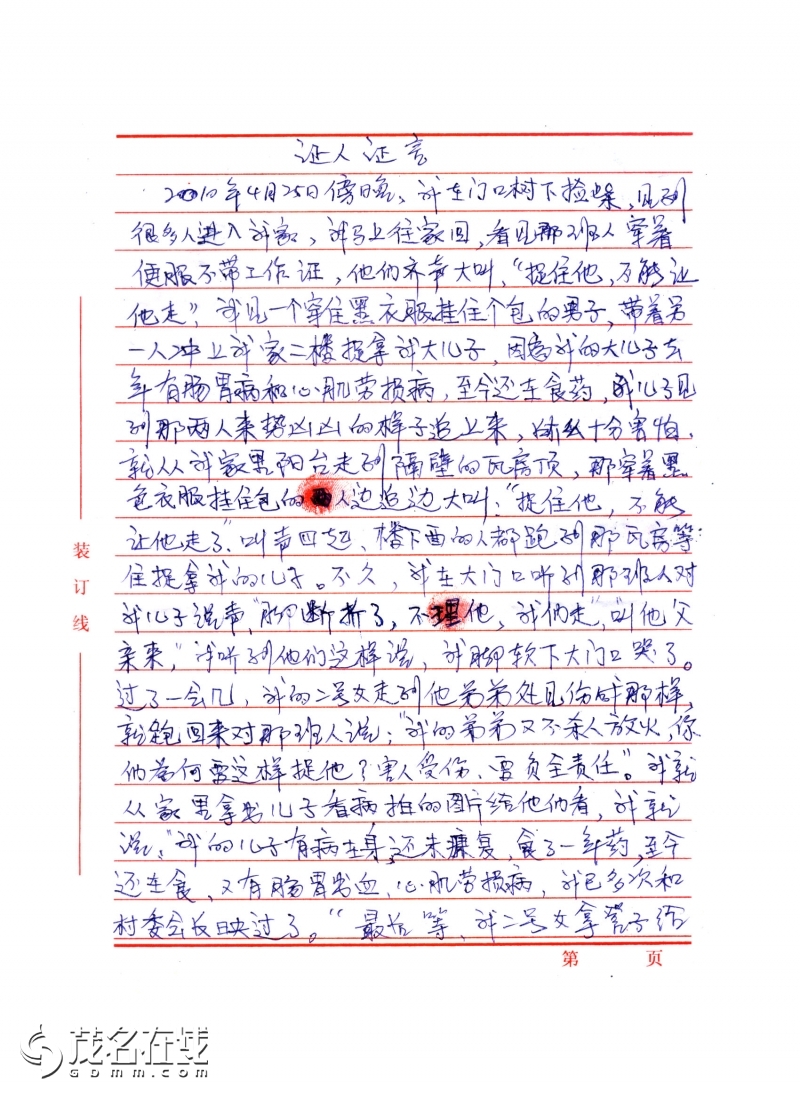 证人证言
2010年4月25日傍晚、我在门口树下捡柴，见到
很多人进入我家，我马上往家回，看见那班人穿着
便服不带工作证，他们齐声大叫，“捉住他，不能让
他走”，我见一个穿住黑衣服挂住个包的男子，带着另
一人冲上我家二楼捉拿我大儿子，因为我的大儿子去
年有肠胃病和心肌劳损病，至今还在食药，我儿子见
到那两人来势凶凶的样子追上来，十分害怕，
就从我家里阳台走到隔壁的瓦房顶，那穿着黑
色衣服挂住包的人边追边大叫：“捉住他，不能
让他走了”，叫声四起、楼下面的人都跑到那瓦房等
住捉拿我的儿子。不久，我在大门口听到那班人对
我儿子说声“脚断折了，不理他，我们走”，“叫他父
亲来，”我听到他们这样说，我脚软下大门口哭了。
过了一会儿，我的二号女走到他弟弟处见伤成那样，
就跑回来对那班人说：“我的弟弟又不杀人放火，你
们为何要这样捉他？害人受伤、要负全责任”。我就
从家里拿出儿子看病拍的图片给他们看，我就
说：“我的儿子有病在身，还未康复，食了一年药，至今
还在食，又有肠胃出血，心肌劳损病，我已多次和
村委会长反映过了。“最后等，我二号女拿管子给
装
订
线
第 页
茂名在线
gdmm.com